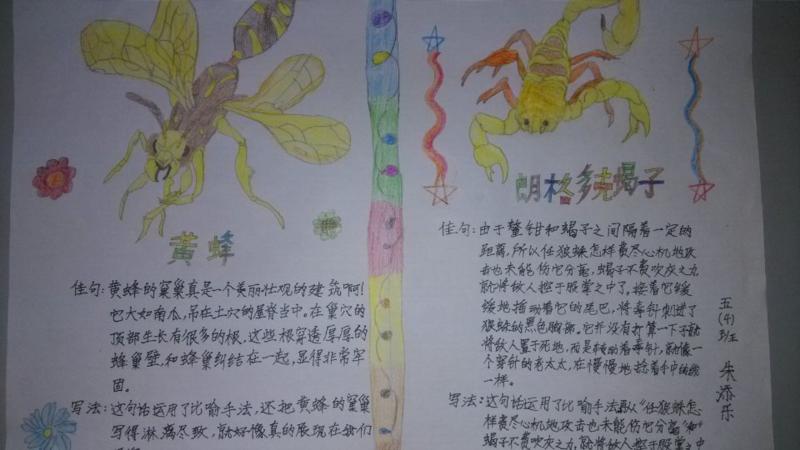 黄蜂
佳句：黄蜂的窠巢真是一个美丽壮观的建筑啊！
它大如南瓜，吊在土穴的屋脊当中。在巢穴的
顶部生长有很多的根，这些根穿透厚厚的
蜂巢壁，和蜂巢纠结在一起，显得非常牢
固。
写法：这句话运用了比喻手法，还把黄蜂的窠巢
写得淋漓尽致，就好像真的展现在我们
朗格多克蝎子
佳句：由于螯钳和蝎子之间隔着一定的
距离，所以任狼蛛怎样费尽心机地攻
击也未能伤它分毫，蝎子不费吹灰之力
就将敌人控于股掌之中了，接着它缓
缓地摇动着它的尾巴，将毒针刺进了
狼蛛的黑色胸部，它并没有打算一下子就
将敌人置于死地，而是转动着毒针，就像一
个穿针的老太太，在慢慢地捻着手中的线
一样。
写法：这句话运用了比喻手法"任狼蛛怎
样费尽心机地攻击也未能伤它分毫"和"
蝎子不费吹灰之力，就将敌人控于股掌之中
五(4)班 朱添乐